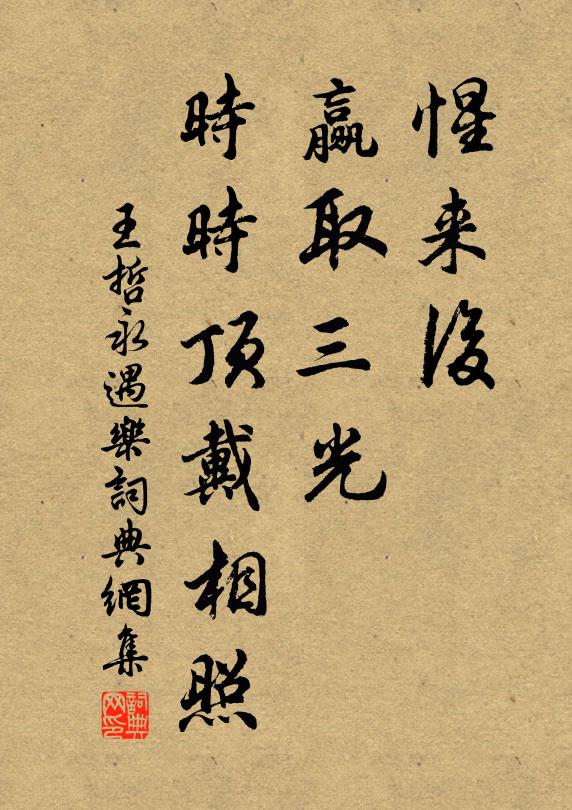 惺来後
赢取三光
時時頂戴相照
王哲永遇樂詞典網集
詞典
网印